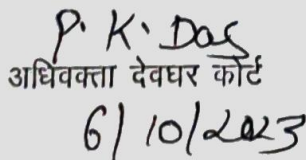 P. K. Das
अधिवक्ता देवघर कोर्ट
6/10/2023